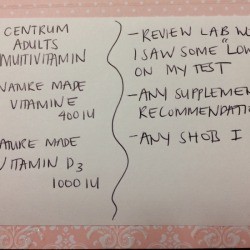 CENTRUM
ADULTS
MULTIVITAMIN
NATURE MADE
VITAMIN E
400 IU
ATURE MADE
VITAMIN D3
1000 IU
-REVIEW LAB
I SAW SOME "LOW
ON MY TEST
-ANY SUPPLEMEN
RECOMMENDATIO
-ANY SHOB I